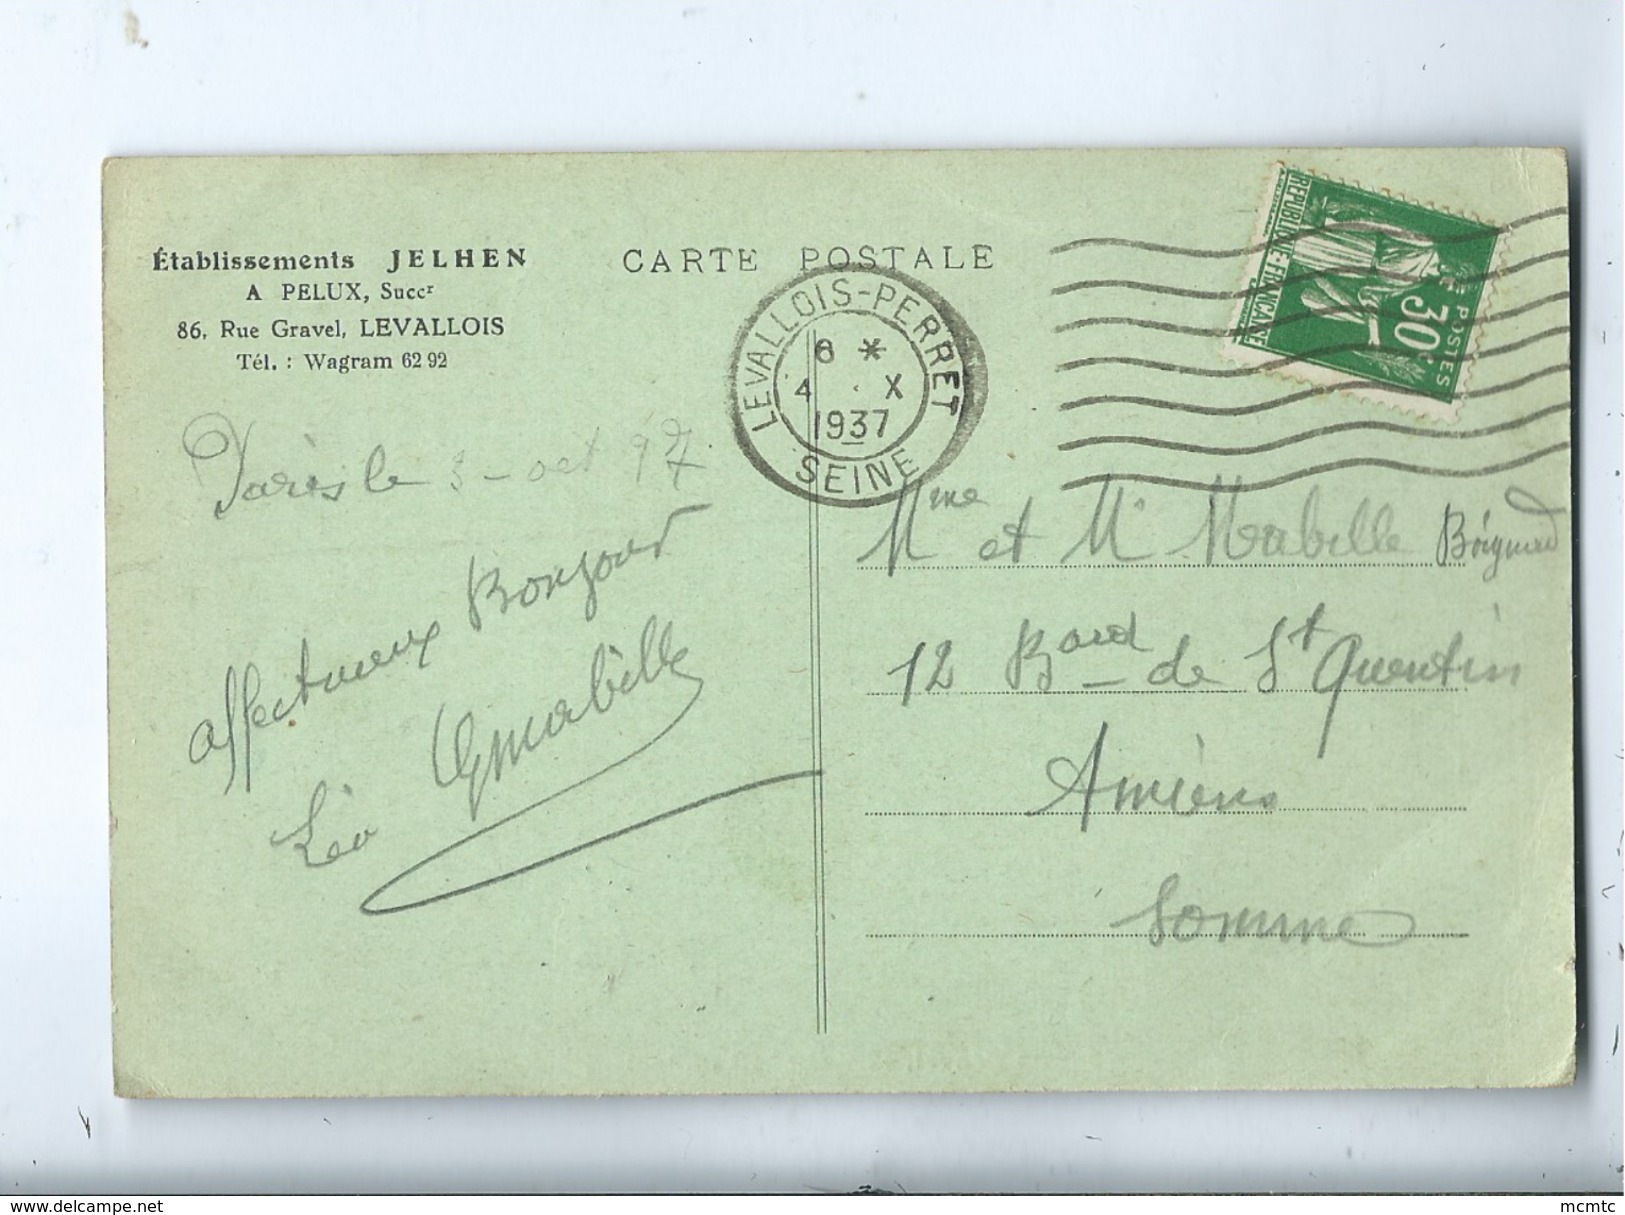 Établissements JELHEN
A PELUX, Succʳ
86, Rue Gravel, LEVALLOIS
Tél. : Wagram 62 92
CARTE POSTALE
LEVALLOIS-PERRET
6 *
4 . X
1937
SEINE
REPUBLIQUE FRANÇAISE
POSTES
30c
Paris le 3 - oct 37
affectueux Bonjour
Léo Mabille
Mme et Mr Mabille
12 Bard de St Quentin
Amiens
Somme
mcmtc